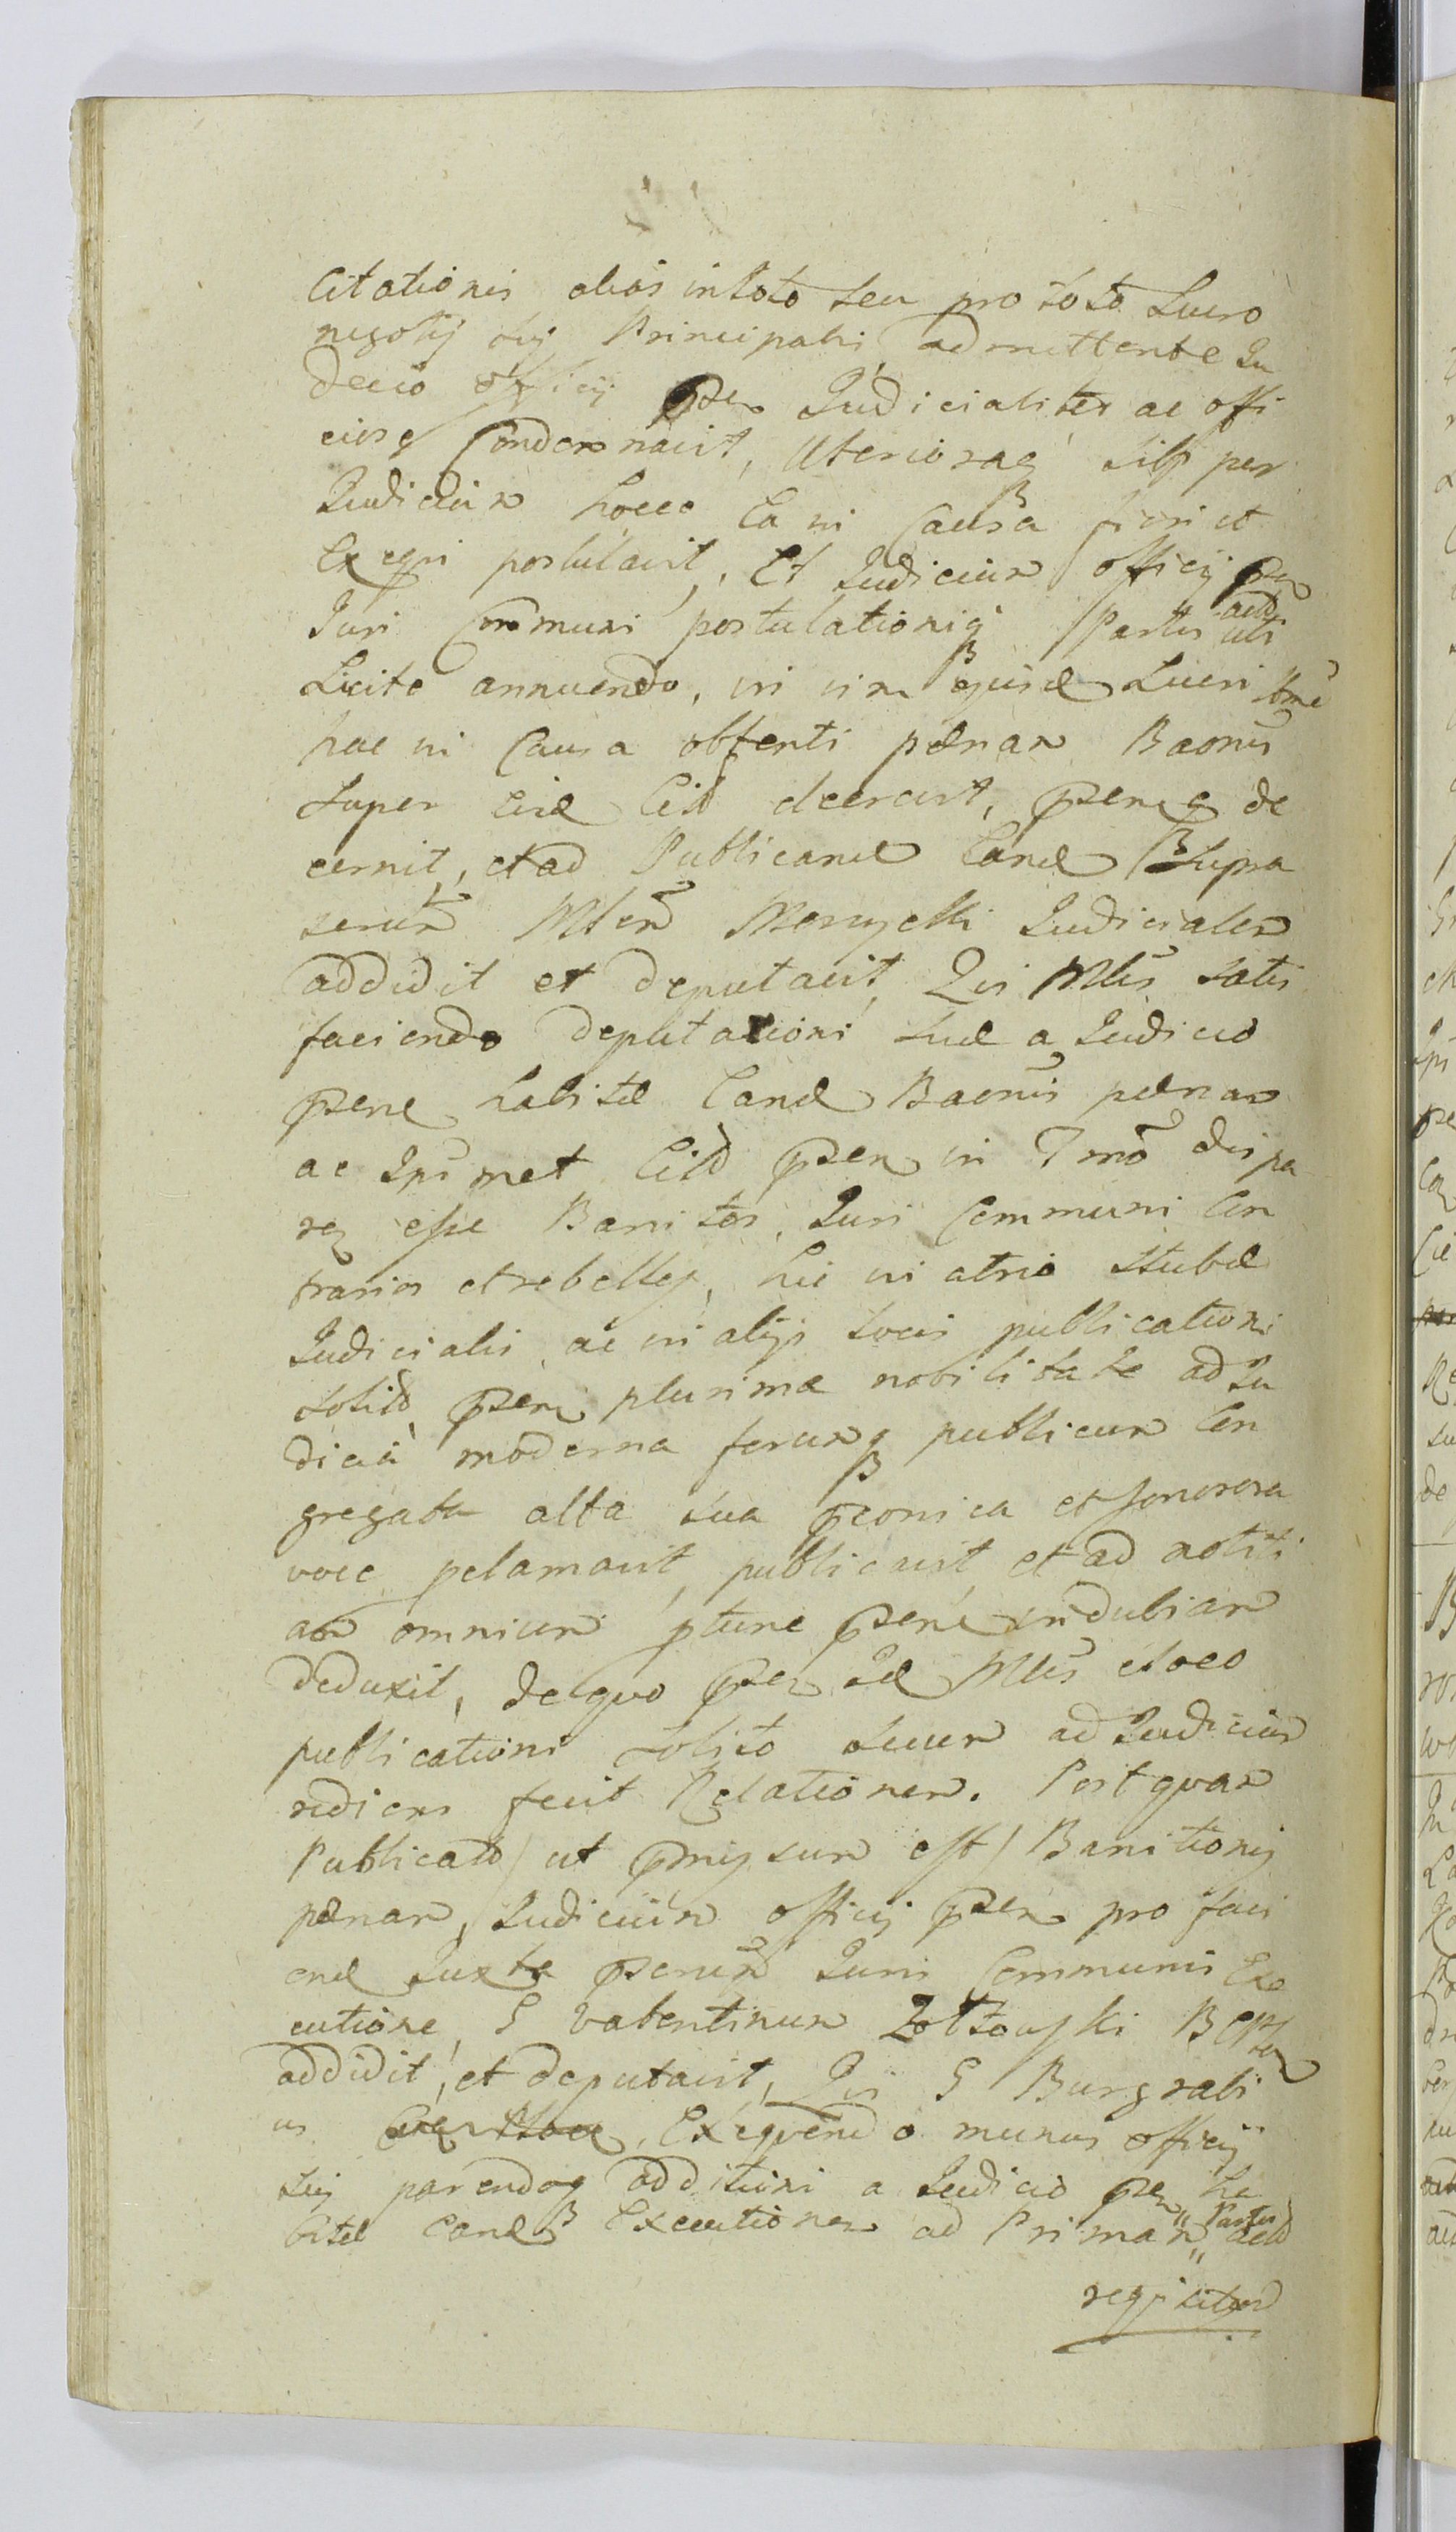 Citationis alias in toto seu pro toto Lucro
negotij sui Principali admittente Iu
dicio officij psen Judicialiter ac offi
ciose Condemnavit, Ulterioraq sibi per
Judicium hocce Ea in Causa fieri et
Exeqvi postulavit, Et Judicium officij psen
Juri Communi postulationiq Partis actae uti
Licite annuendo, in vim ejusd Lucri
hac in Causa obtenti paenam Baonis
super eisd Citd decrevit, pseneq de
cernit, et ad Publicand Eand supra
scrin Mlem Meruyelli Judicialem
addidit et deputavit, Qui Mlis satis
faciendo deputationi suae a Judicio
psene habitae Eand Baonis paenam
ac Ipsimet Citd psen in Tmo dispa
esse Banitos, Juri Communi Con
trarios et rebelles, hic in atrio Stubae
Judicialis, ac in alijs Locis publicationi
solitd, psen plurima nobilitate ad Iu
dicia moderna ferunq publicum Con
gregata alta sua pconica et sonorosa
voce pclamavit, publicavit, et ad notiti
am omnium ptunc psene indubiam
deduxit, de qvo psen Id Mlis e loco
publicationi solito suum ad Judicium
rediens fecit Relationem. Postqvam
Publicatd / ut pmissum est / Banitionis
paenam, Judicium officij psen pro faci
end Juxta pscrin Juris Communis Exe
cutione, G Valentinum Zoltowski
addidit, et deputavit, Qui G Burgrabi
us Exeqvendo munus officij
sui parendoq additioni a Judicio psen ha
bitae Eand Executionem ad Primam Partis actae
reqisitam